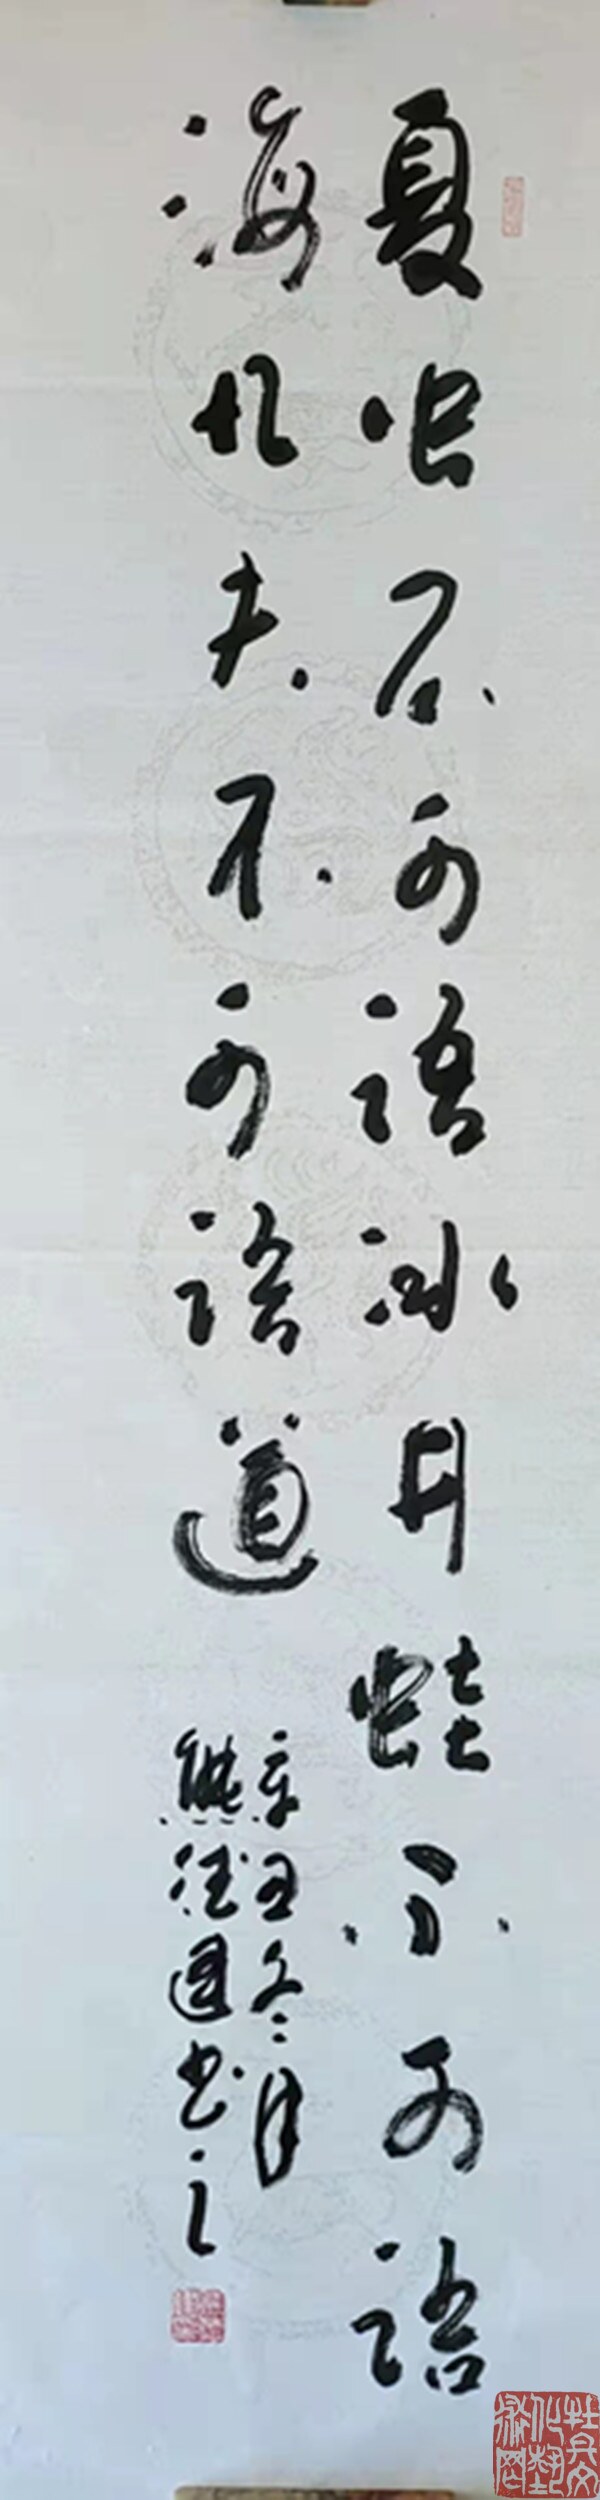 夏虫不可语冰井蛙不可语
海凡夫不可语道
辛丑冬月
熊德国书之